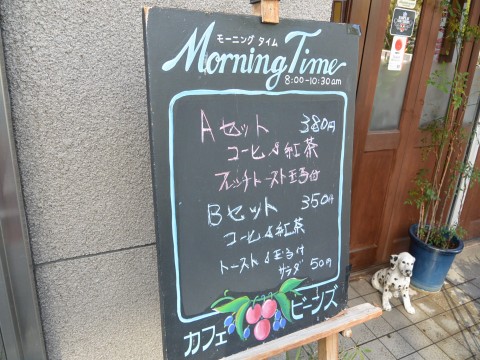 モーニング タイム
Morning Time
8:00-10:30am
Aセット 380円
コーヒ & 紅茶
フレッチトースト玉子付
Bセット 350円
コーヒ & 紅茶
トースト & 玉子付
サラダ 50円
カフェ ビーンズ